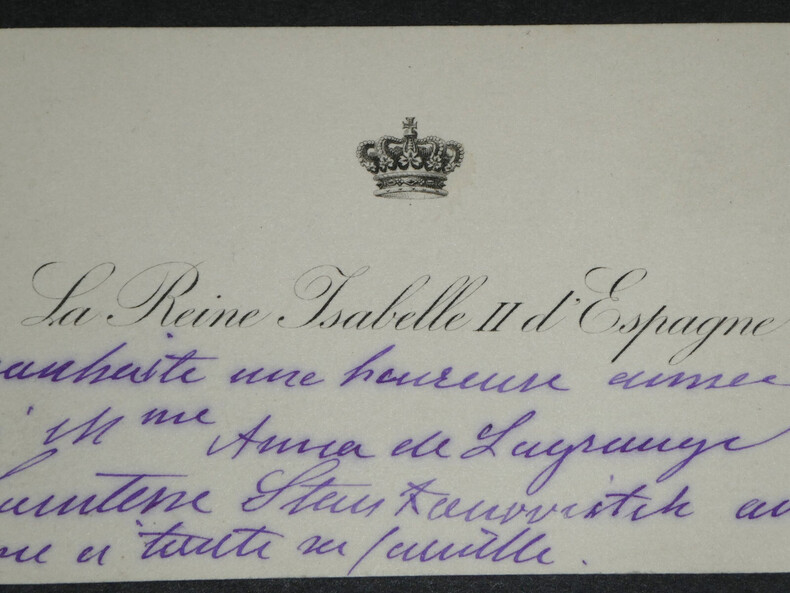 La Reine Isabelle II d'Espagne
souhaite une heureuse année
Mme Anna de Lagrange
Comtesse Stankowistch
toute sa famille.